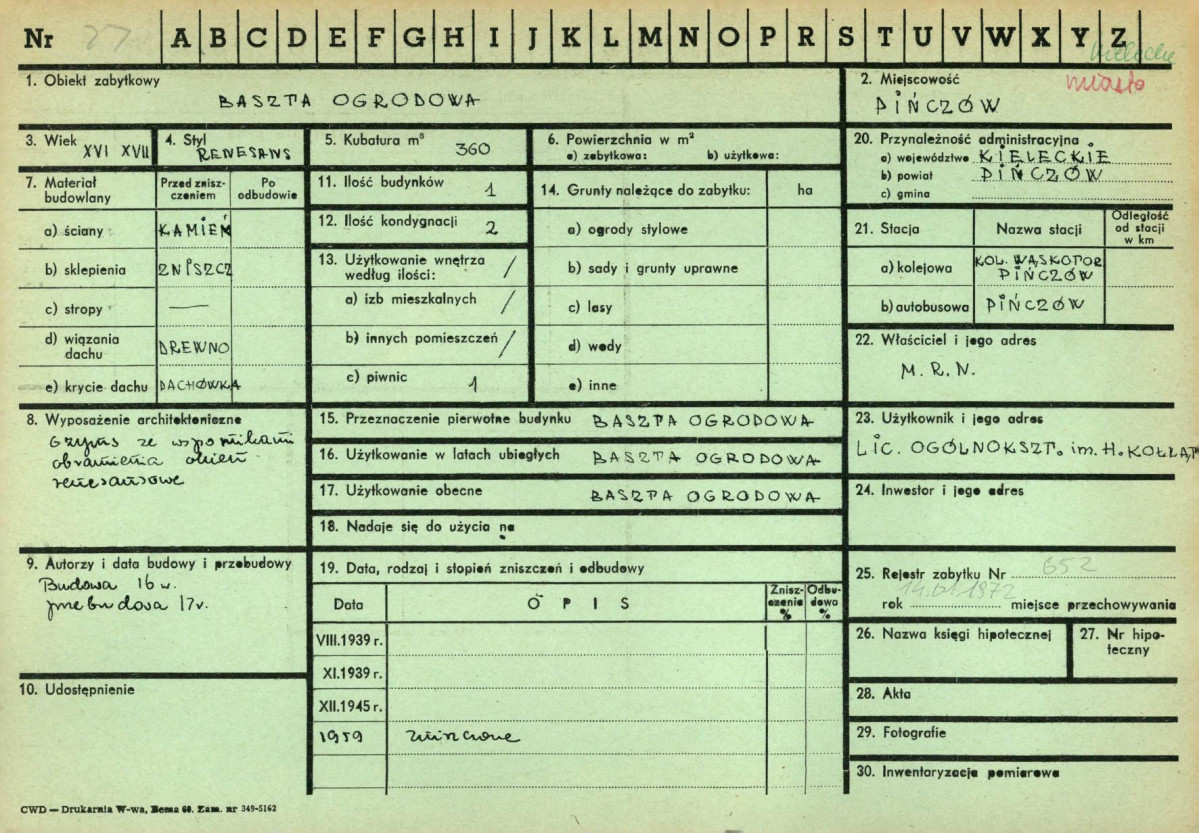 Nr 27 A B C D E F G H I J K L M N O P R S T U V W X Y Z
kieleckie
miasto
1. Obiekt zabytkowy
BASZTA OGRODOWA
2. Miejscowość
PIŃCZÓW
3. Wiek XVI XVII
4. Styl RENESANS
5. Kubatura m³ 360
6. Powierzchnia w m²
a) zabytkowa: b) użytkowa:
20. Przynależność administracyjna
a) województwo KIELECKIE
b) powiat PIŃCZÓW
c) gmina
7. Materiał budowlany
Przed zniszczeniem
Po odbudowie
a) ściany KAMIEŃ
b) sklepienia ZNISZCZ
c) stropy —
d) wiązania dachu DREWNO
e) krycie dachu DACHÓWKA
11. Ilość budynków 1
12. Ilość kondygnacji 2
13. Użytkowanie wnętrza według ilości: /
a) izb mieszkalnych /
b) innych pomieszczeń /
c) piwnic 1
14. Grunty należące do zabytku: ha
a) ogrody stylowe
b) sady i grunty uprawne
c) lasy
d) wody
e) inne
21. Stacja Nazwa stacji Odległość od stacji w km
a) kolejowa KOL. WĄSKOTOR. PIŃCZÓW
b) autobusowa PIŃCZÓW
22. Właściciel i jego adres
M. R. N.
8. Wyposażenie architektoniczne
Gzyms ze wspornikami
obramienia okien
renesansowe
15. Przeznaczenie pierwotne budynku BASZTA OGRODOWA
16. Użytkowanie w latach ubiegłych BASZTA OGRODOWA
17. Użytkowanie obecne BASZTA OGRODOWA
18. Nadaje się do użycia na
23. Użytkownik i jego adres
LIC. OGÓLNOKSZT. im. H. KOŁŁĄT
24. Inwestor i jego adres
9. Autorzy i data budowy i przebudowy
Budowa 16 w.
przebudowa 17 w.
10. Udostępnienie
19. Data, rodzaj i stopień zniszczeń i odbudowy
Data OPIS Zniszczenie % Odbudowa %
VIII.1939 r.
XI.1939 r.
XII.1945 r.
1959 zniszczone
25. Rejestr zabytku Nr 652
rok 14.01.1972 miejsce przechowywania
26. Nazwa księgi hipotecznej
27. Nr hipoteczny
28. Akta
29. Fotografie
30. Inwentaryzacja pomiarowa
CWD — Drukarnia W-wa, Bema 60. Zam. nr 349-5162